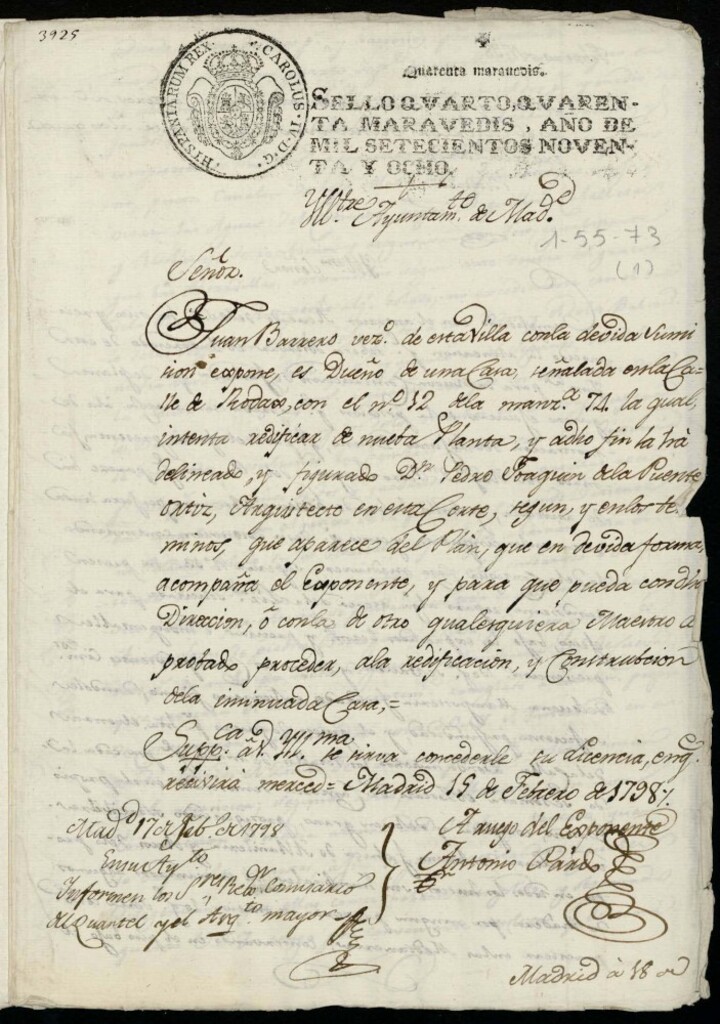 3925
HISPANIARUM REX. CAROLUS. IV. D. G.
Quarenta maravedis.
SELLO QVARTO, QVAREN-
TA MARAVEDIS, AÑO DE
MIL SETECIENTOS NOVEN-
TA Y OCHO.
Yll.tre Ayuntam.to de Mad.d
1-55-73
(1)
Señor.
Juan Barrero vez.o de esta Villa con la devida sumi
sion expone, es Dueño de una Casa, señalada en la Ca=
lle de Rodas, con el n.o 12 de la manz.a 74. la qual,
intenta redificar de nueba Planta, y a dho fin la hà
delineado, y figurado D.n Pedro Joaquin de la Puente
Ortiz, Arquitecto en esta Corte, segun, y en los ter
minos, que aparece del Plàn, que en devida forma,
acompaña el Exponente, y para que pueda con dha
Direccion, ò con la de otro qualesquiera Maestro a
probado proceder, a la redificacion, y Construbcion
de la insinuada Casa,=
Supp.ca à V. Yll.ma se sirva concederle su licencia, en q.e
recivirà merced= Madrid 15 de Febrero de 1798
Mad.d 17 de Feb.o de 1798
En su Ay.to
Informen los S.res Reg.or Comisario
del Quartel y el Arq.to mayor
A ruego del Exponente
Antonio Pardo
Madrid à 18 de